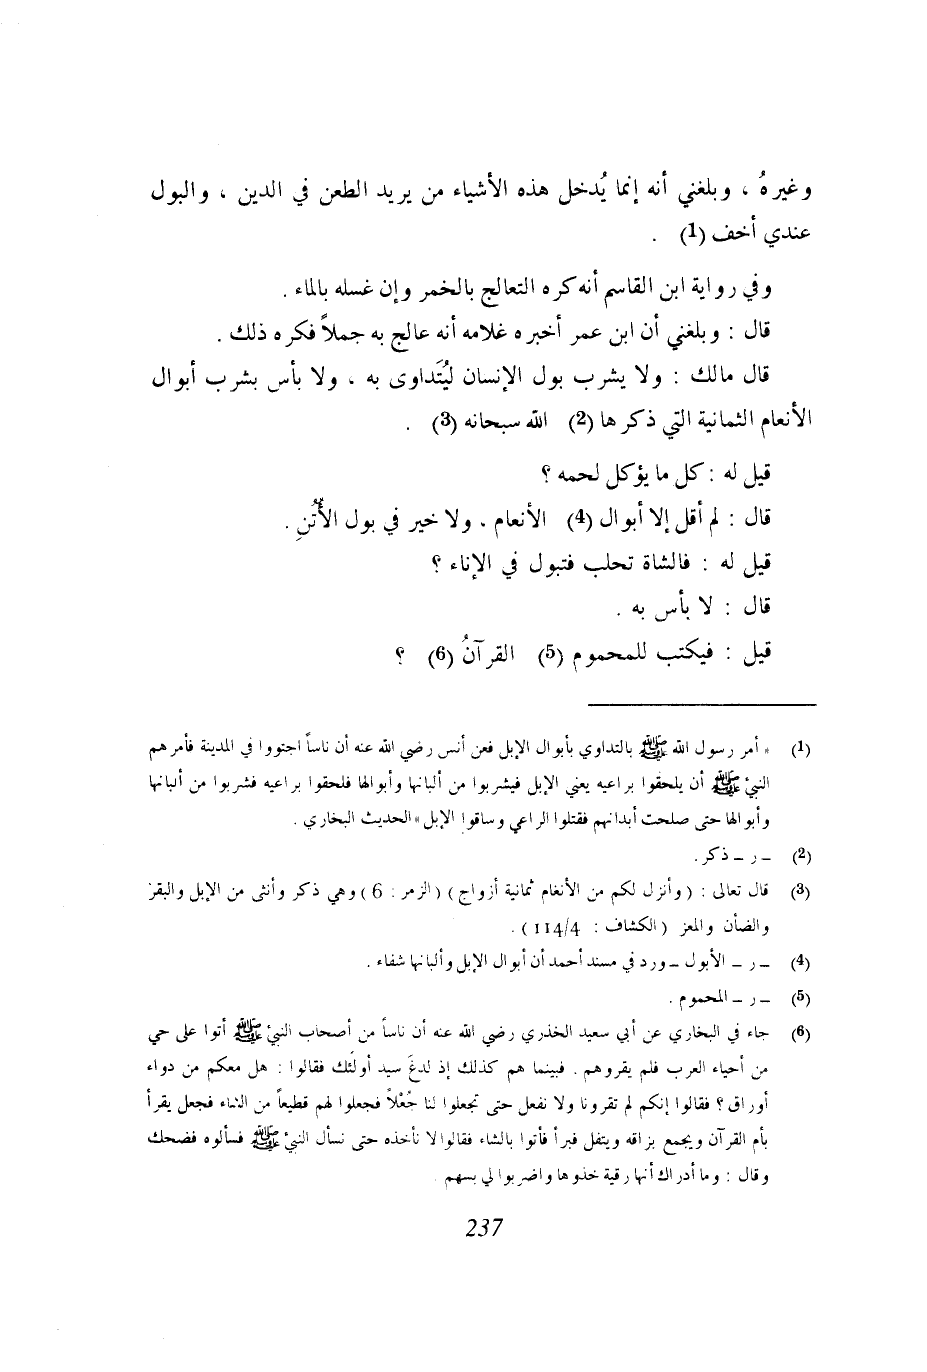 وغيرهُ ، وبلغني أنه إنما يُدخل هذه الأشياء من يريد الطعن في الدين ، والبول
عندي أخف (1) .
وفي رواية ابن القاسم أنه كره التعالج بالخمر وإن غسله بالماء .
قال : وبلغني أن ابن عمر أخبره غلامه أنه عالج به جملاً فكره ذلك .
قال مالك : ولا يشرب بول الإنسان ليُتَداوى به ، ولا بأس بشرب أبوال
الأنعام الثمانية التي ذكرها (2) الله سبحانه (3) .
قيل له : كل ما يؤكل لحمه ؟
قال : لم أقل إلا أبوال (4) الأنعام ، ولا خير في بول الأُتُنِ .
قيل له : فالشاة تحلب فتبول في الإناء ؟
قال : لا بأس به .
قيل : فيكتب للمحموم (5) القرآنُ (6) ؟
(1) « أمر رسول الله ﷺ بالتداوي بأبوال الإبل فعن أنس رضي الله عنه أن ناساً اجتووا في المدينة فأمرهم
النبيُّ ﷺ أن يلحقوا براعيه يعني الإبل فيشربوا من ألبانها وأبوالها فلحقوا براعيه فشربوا من ألبانها
وأبوالها حتى صلحت أبدانهم فقتلوا الراعي وساقوا الإبل » الحديث البخاري .
(2) ـ ر ـ ذكر .
(3) قال تعالى : ( وأنزل لكم من الأنعام ثمانية أزواج ) ( الزمر : 6 ) وهي ذكر وأنثى من الإبل والبقر
والضأن والمعز ( الكشاف : 114/4 ) .
(4) ـ ر ـ الأبول ـ ورد في مسند أحمد أن أبوال الإبل وألبانها شفاء .
(5) ـ ر ـ المحموم .
(6) جاء في البخاري عن أبي سعيد الخذري رضي الله عنه أن ناساً من أصحاب النبيُّ ﷺ أتوا على حي
من أحياء العرب فلم يقروهم . فبينما هم كذلك إذ لدغَ سيد أولئك فقالوا : هل معكم من دواء
أوراق ؟ فقالوا إنكم لم تقرونا ولا نفعل حتى تجعلوا لنا جُعْلاً فجعلوا لهم قطيعاً من الشاء فجعل يقرأ
بأم القرآن ويجمع بزاقه ويتفل فبرأ فأتوا بالشاء فقالوا لا نأخذه حتى نسأل النبيُّ ﷺ فسألوه فضحك
وقال : وما أدراك أنها رقية خذوها واضربوا لي بسهم .
237